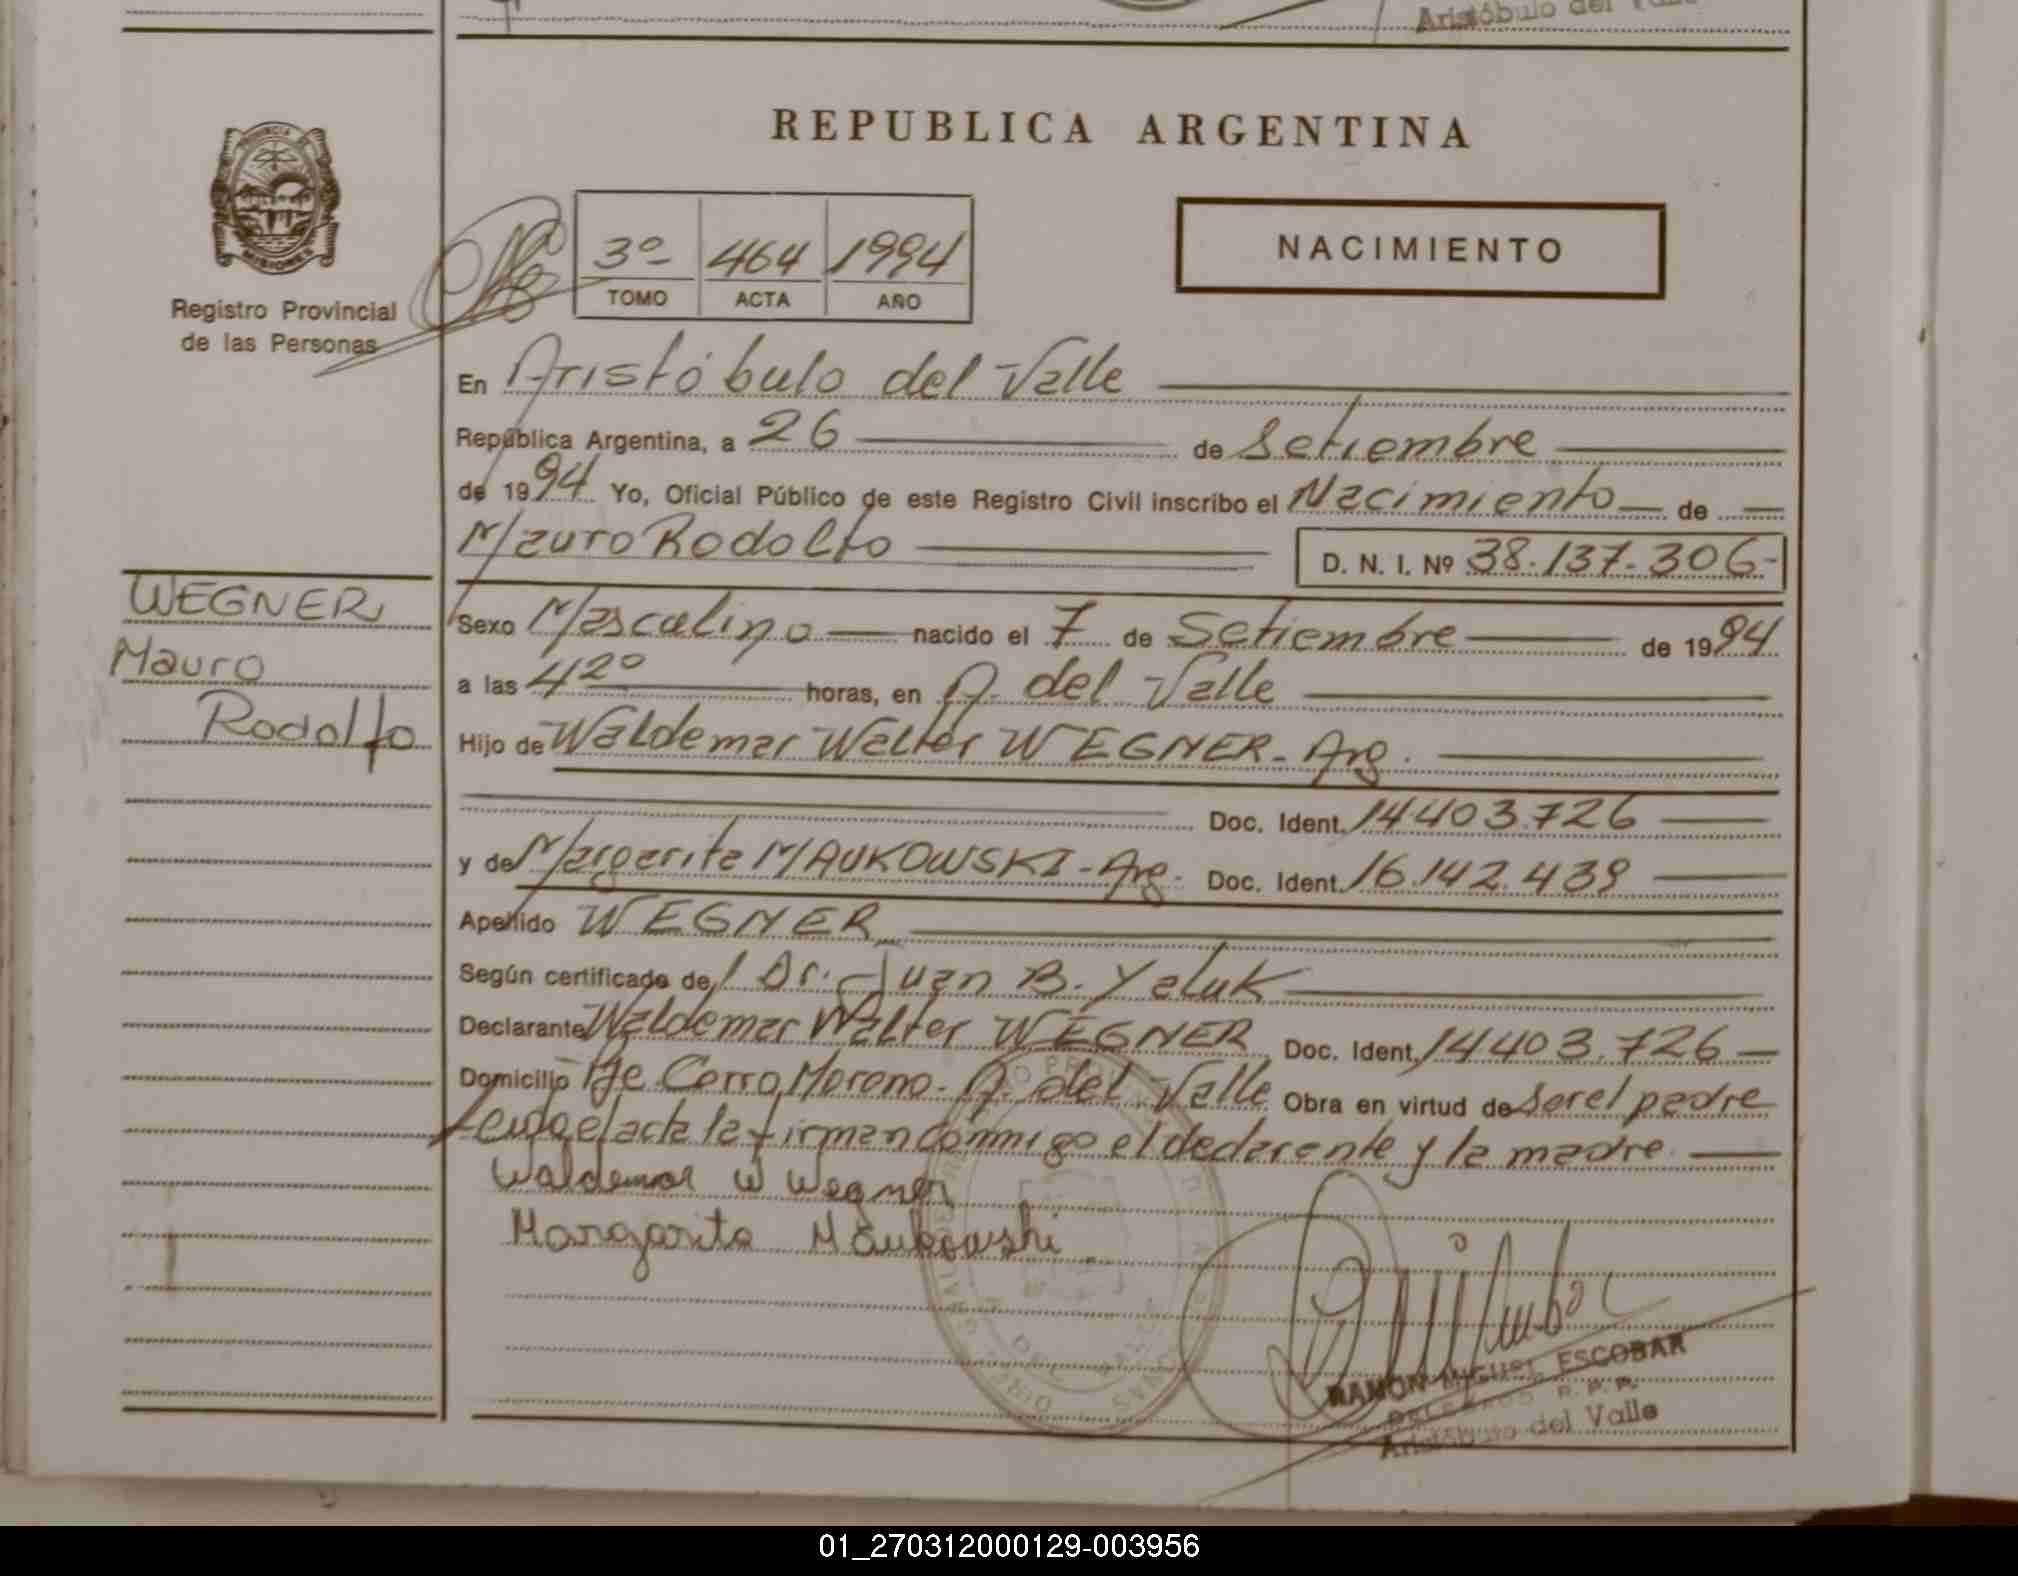 Aristóbulo del Valle
REPUBLICA ARGENTINA
PROVINCIA
MISIONES
Registro Provincial
de las Personas
3º 464 1994
TOMO ACTA AÑO
NACIMIENTO
En Aristóbulo del Valle
República Argentina, a 26 de Setiembre
de 1994 Yo, Oficial Público de este Registro Civil inscribo el Nacimiento de
Mauro Rodolfo D. N. I. Nº 38.137.306-
WEGNER
Mauro
Rodolfo
Sexo Masculino nacido el 7 de Setiembre de 1994
a las 4²⁰ horas, en A. del Valle
Hijo de Waldemar Walter WEGNER - Arg.
Doc. Ident. 14403.726
y de Margarita MAUKOWSKI - Arg. Doc. Ident. 16.142.439
Apellido WEGNER
Según certificado del Dr. Juan B. Yaluk
Declarante Waldemar Walter WEGNER Doc. Ident. 14403.726
Domicilio Pje Cerro Moreno - A. del Valle Obra en virtud de ser el padre
Leida el acta la firman conmigo el declarante y la madre.
Waldemar W Wegner
Margarita Maukowski
RAMON MIGUEL ESCOBAR
DELEGADO R. P. P.
Aristóbulo del Valle
01_270312000129-003956